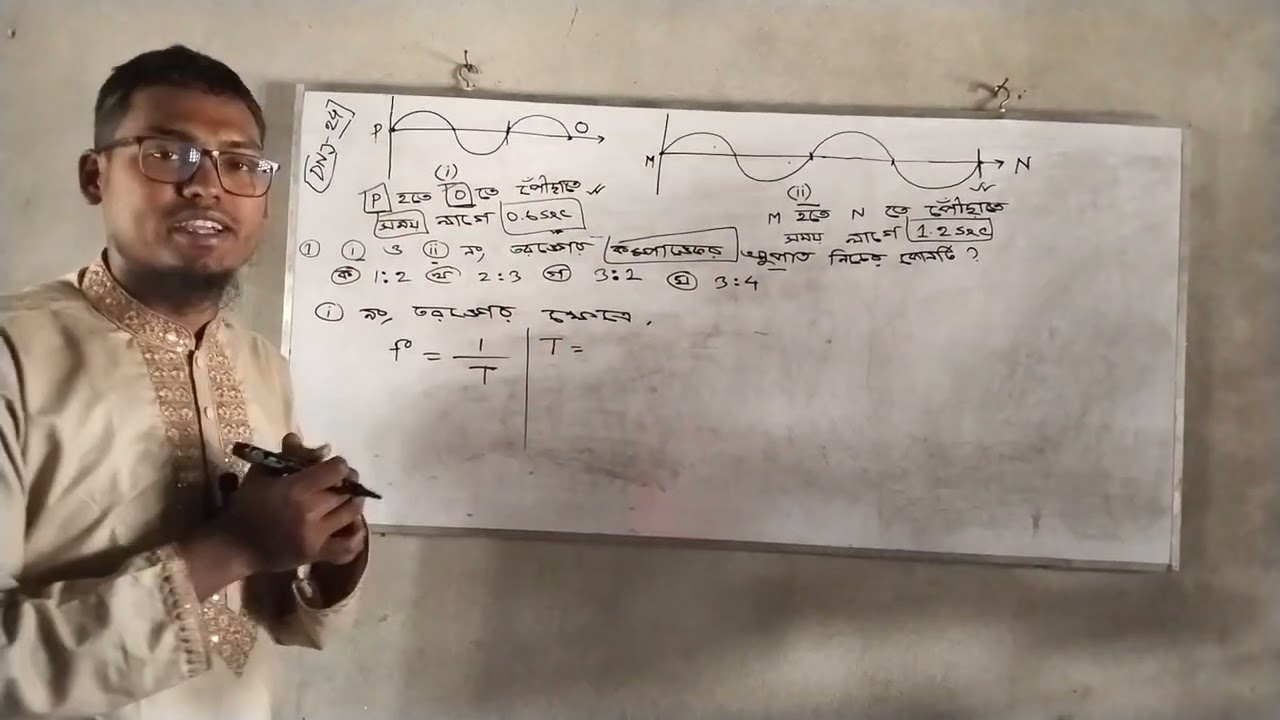 DNJ-24
P
O
(i)
P হতে O তে পৌঁছাতে
সময় লাগে 0.6 sec
M
N
(ii)
M হতে N তে পৌঁছাতে
সময় লাগে 1.2 sec
① i ও ii নং তরঙ্গের কম্পাঙ্কের অনুপাত নিচের কোনটি?
ক 1:2 খ 2:3 গ 3:2 ঘ 3:4
i নং তরঙ্গের ক্ষেত্রে,
f = 1/T
T =